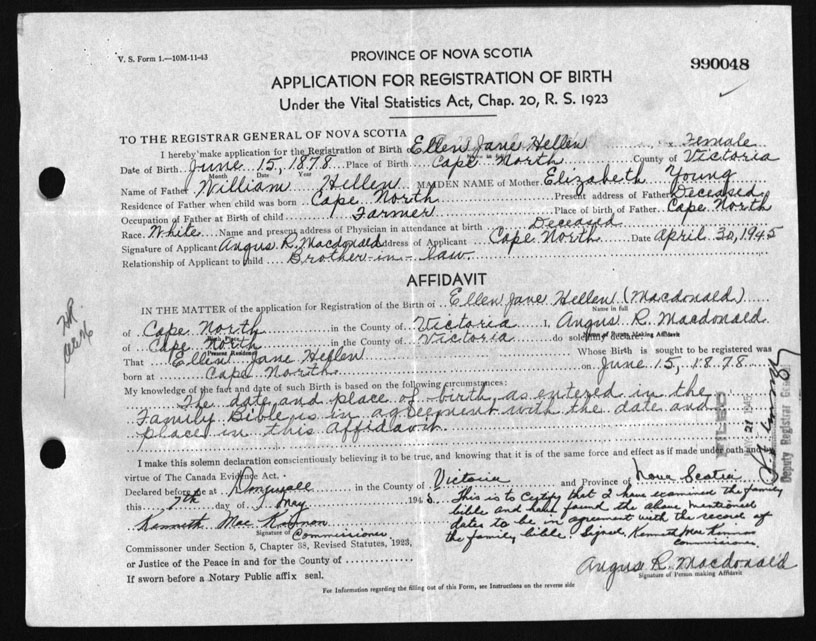 V. S. Form 1.—10M-11-43
PROVINCE OF NOVA SCOTIA
990048
APPLICATION FOR REGISTRATION OF BIRTH
Under the Vital Statistics Act, Chap. 20, R. S. 1923
TO THE REGISTRAR GENERAL OF NOVA SCOTIA
I hereby make application for the Registration of Birth Ellen Jane Hellen Female
Date of Birth June 15, 1878 Place of Birth Cape North County of Victoria
Month Date Year
Name of Father William Hellen MAIDEN NAME of Mother Elizabeth Young
Residence of Father when child was born Cape North Present address of Father Deceased
Occupation of Father at Birth of child Farmer Place of birth of Father Cape North
Race White Name and present address of Physician in attendance at birth Deceased
Signature of Applicant Angus R. Macdonald Address of Applicant Cape North Date April 30, 1945
Relationship of Applicant to child Brother-in-law
AFFIDAVIT
IN THE MATTER of the application for Registration of the Birth of Ellen Jane Hellen (Macdonald)
Name in full
of Cape North in the County of Victoria I, Angus R. Macdonald
Birth Place Name of Person Making Affidavit
of Cape North in the County of Victoria do solemnly declare:
Present Residence
That Ellen Jane Hellen Whose Birth is sought to be registered was
born at Cape North on June 15, 1878
My knowledge of the fact and date of such Birth is based on the following circumstances:
The date and place of birth, as entered in the
Family Bible is in agreement with the date and
place in this affidavit
I make this solemn declaration conscientiously believing it to be true, and knowing that it is of the same force and effect as if made under oath and by
virtue of The Canada Evidence Act.
Declared before me at Dingwall in the County of Victoria and Province of Nova Scotia
this 7th day of May 1945
This is to certify that I have examined the family
bible and have found the above mentioned
dates to be in agreement with the record of
the family bible. Signed, Kenneth MacKinnon
Commissioner
Kenneth MacKinnon
Signature of Commissioner
Commissoner under Section 5, Chapter 38, Revised Statutes, 1923,
or Justice of the Peace in and for the County of
If sworn before a Notary Public affix seal.
Angus R. Macdonald
Signature of Person making Affidavit
For Information regarding the filling out of this Form, see Instructions on the reverse side
FILED
Deputy Registrar General